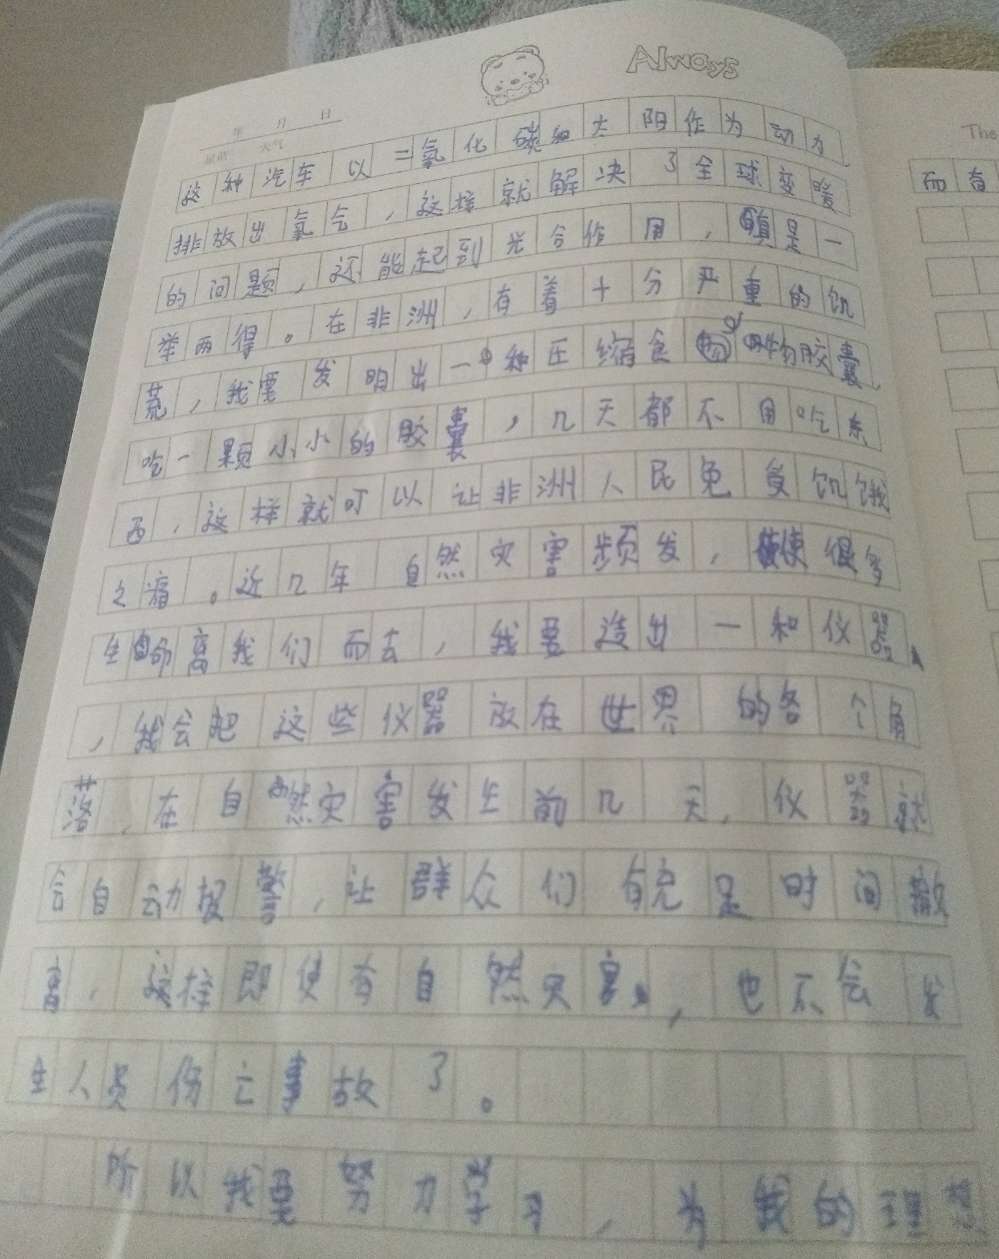 Always
年 月 日
星期 天气
这种汽车以二氧化碳和太阳作为动力,
排放出氧气,这样就解决了全球变暖
的问题,还能起到光合作用,真是一
举两得。在非洲,有着十分严重的饥
荒,我要发明出一种压缩食物胶囊,
吃一颗小小的胶囊,几天都不用吃东
西,这样就可以让非洲人民免受饥饿
之痛。近几年自然灾害频发,使很多
生命离我们而去,我要造出一种仪器
,我会把这些仪器放在世界的各个角
落,在自然灾害发生前几天,仪器就
会自动报警,让群众们有充足时间撤
离,这样即使有自然灾害,也不会发
生人员伤亡事故了。
所以我要努力学习,为我的理想
The
而奋